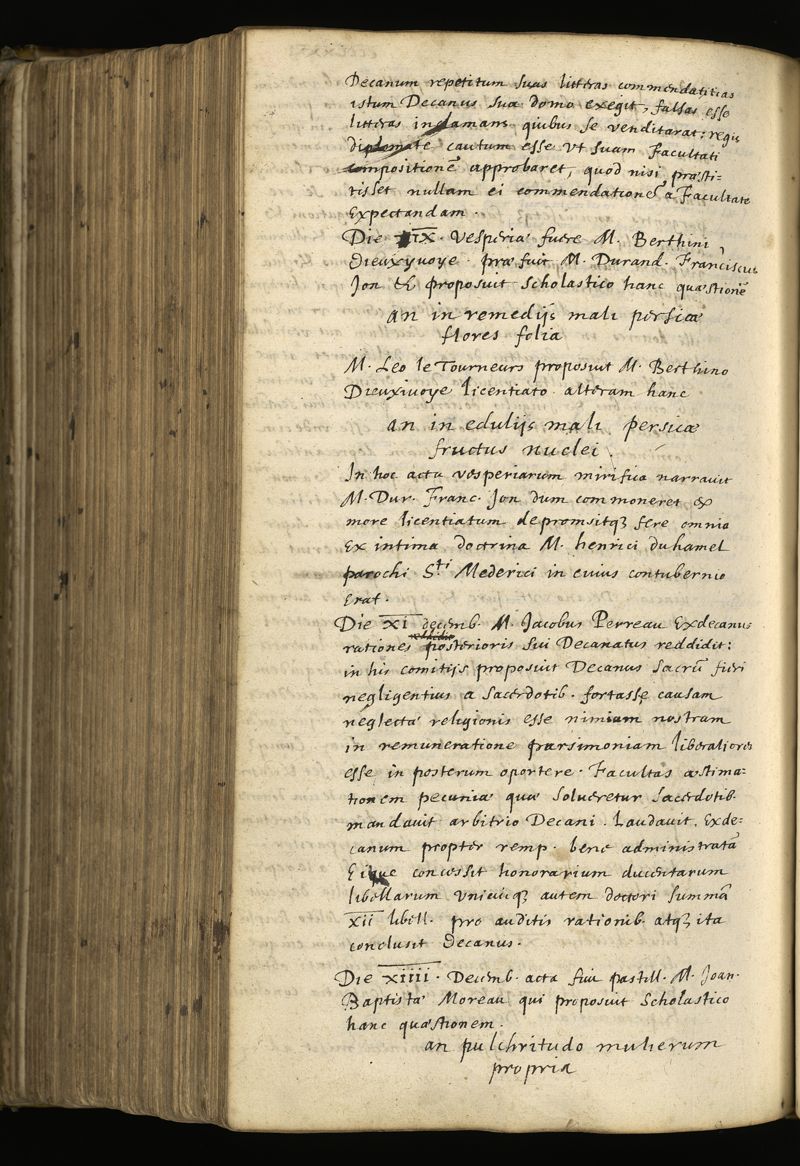 Decanum repetitum suas litteras commendatitias
istum Decanus sua domo exegit, falsas esse
litteras inclamans quibus se venditarat: regio
diplomate cautum esse vt suam Facultati
compositionē approbaret, quod nisi præsti-
tisset nullam ei commendationē a Facultate
Expectandam.
Die IX. Vesperiæ fuere M. Berthini
Dieuxyuoye. præfuit M. Durand. Franciscus
Jon & proposuit Scholastico hanc quæstionē
an in remedijs mali persicæ
flores folia
M. Leo le Tourneurs proposuit M. Berthino
Dieuxiuoye licentiato alteram hanc
an in edulijs mali persicæ
fructus nuclei.
In hoc actu vesperiarum mirifica narrauit
M. Dur. Franc. Jon dum commoneret ex
more licentiatum depromsitq3 fere omnia
Ex intima doctrina M. henrici duhamel
parochi S.ti Mederici in cuius contubernio
Erat.
Die XI decemb. M. Jacobus Perreau Exdecanus
rationes posterioris sui Decanatus reddidit:
in his comitijs proposuit Decanus Sacrū fieri
negligentius a Sacerdotib. fortasse causam
neglectæ religionis esse nimiam nostram
in remuneratione parsimoniam liberaliores
esse in posterum oportere. Facultas æstima-
tionem pecuniæ quæ solueretur Sacerdotib.
mandauit arbitrio Decani. Laudauit. Exde-
canum propter remp. bene administratā
Eique concessit honorarium ducentarum
libellarum vnicuiq3 autem doctori summā
XII libell. pro auditis rationib. atq3 ita
conclusit Decanus.
Die XIIII. Decemb. acta fuit pastill. M. Joan.
Baptistæ Moreau qui proposuit Scholastico
hanc quæstionem.
an pulchritudo mulierum
propria